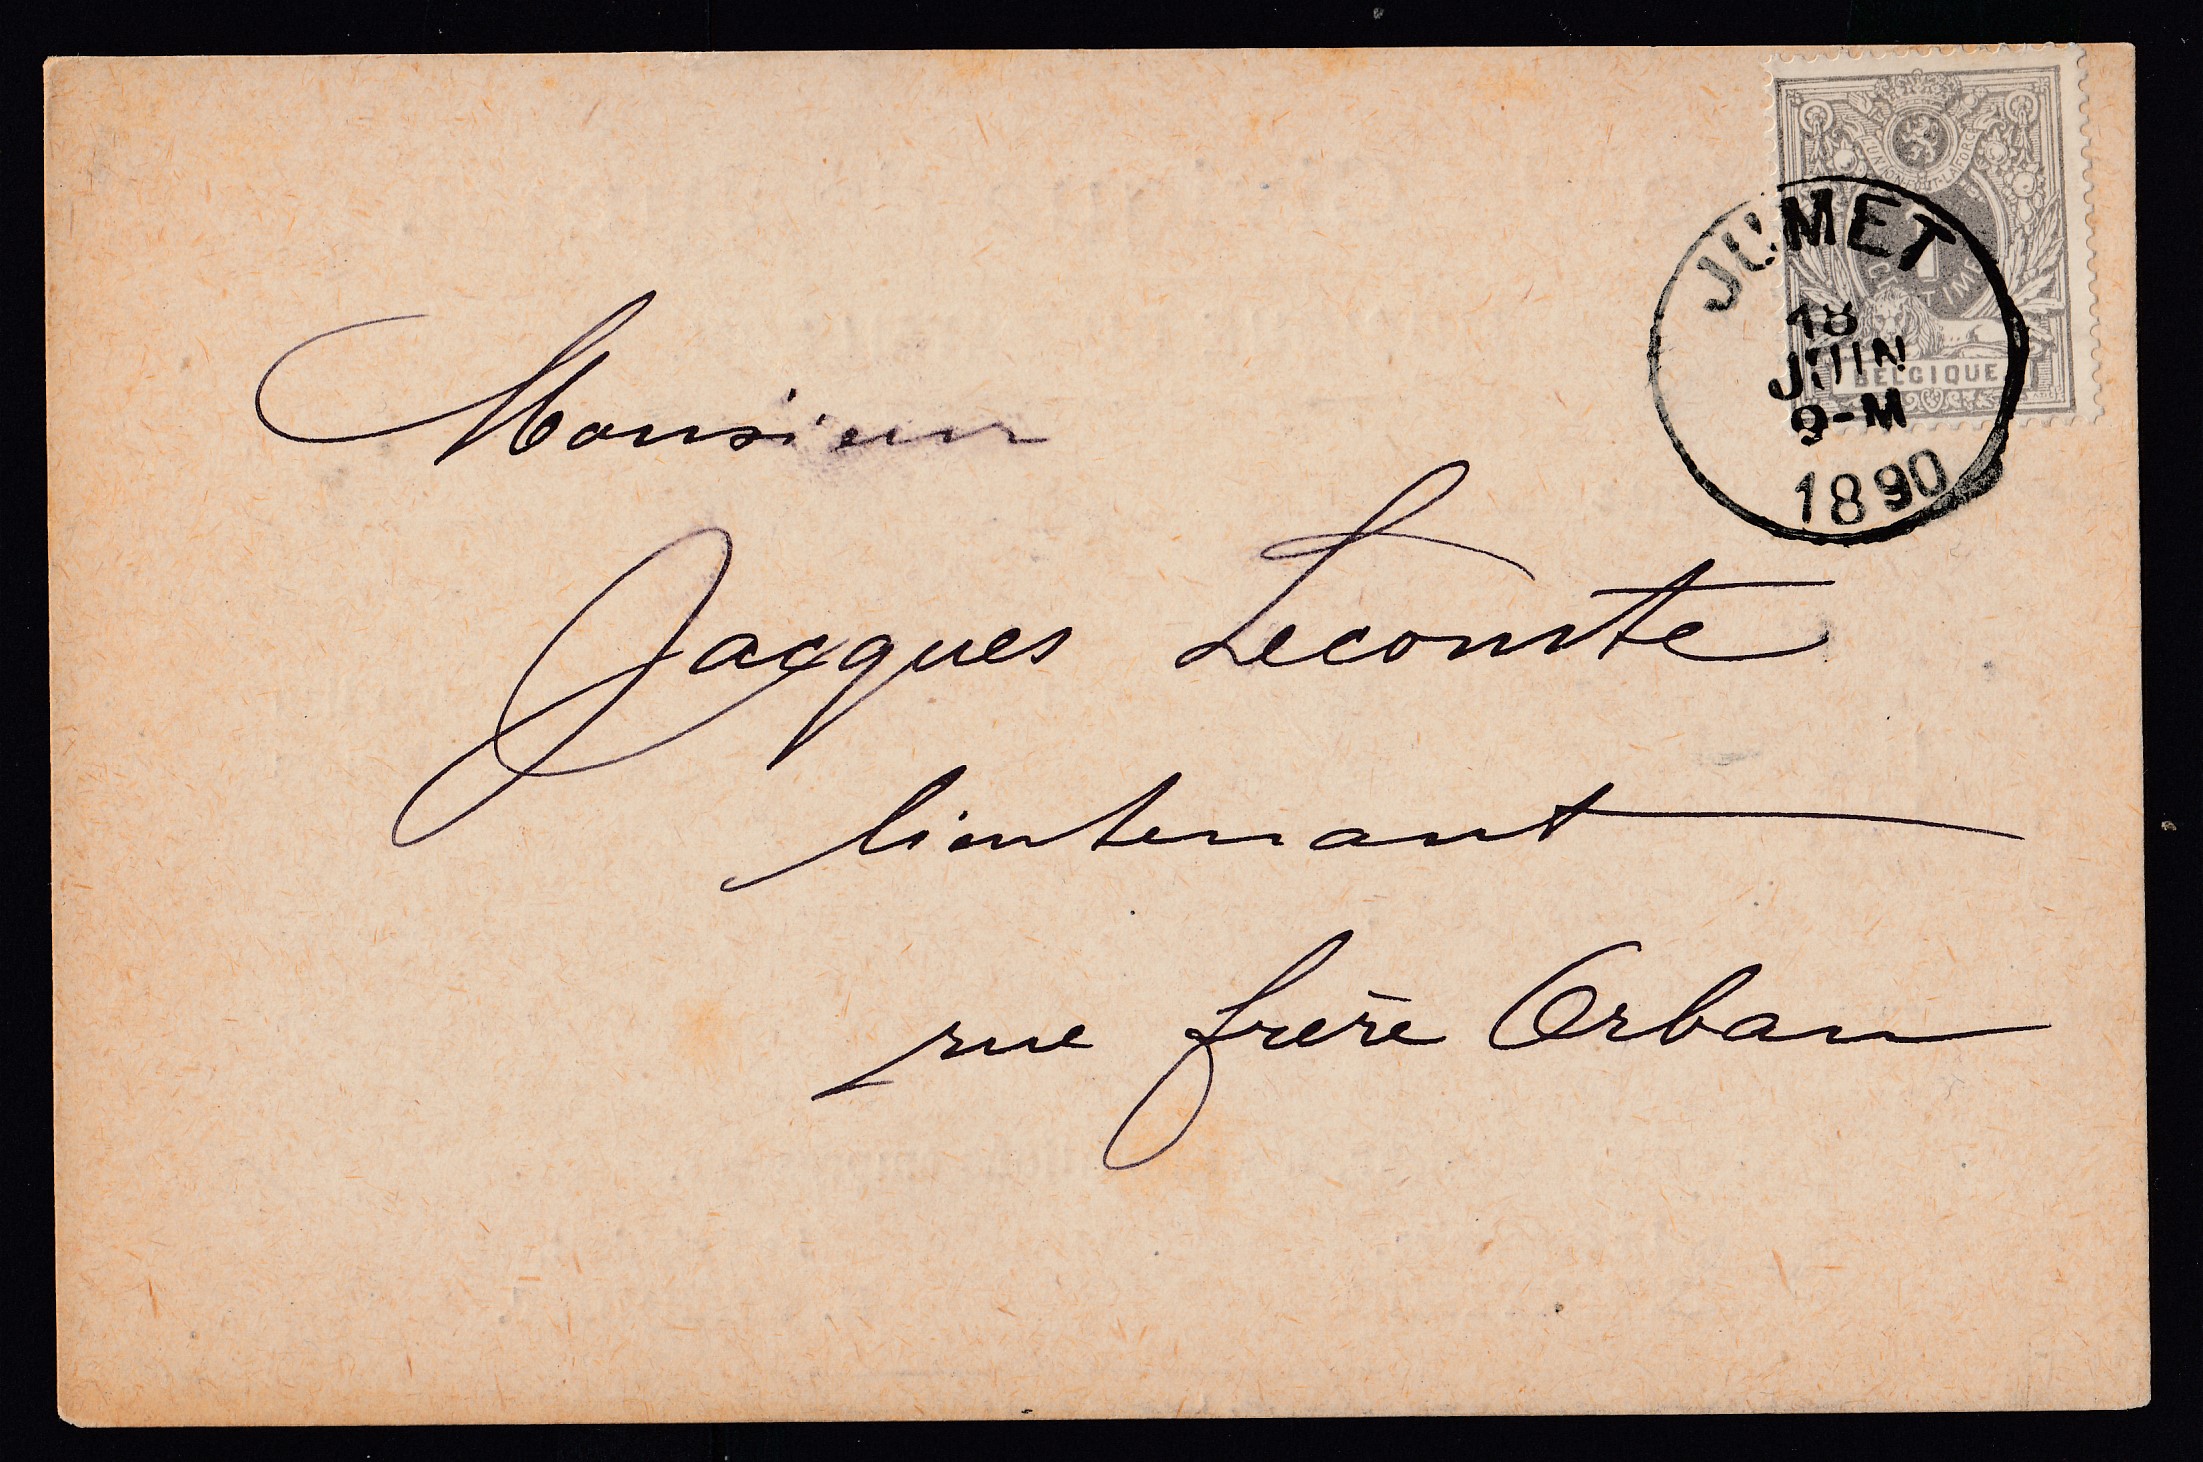 L'UNION FAIT LA FORCE
1
CENTIME
BELGIQUE
JUMET
18
JUIN
9-M
1890
Monsieur
Jacques Lecomte
lieutenant
rue frère Orban